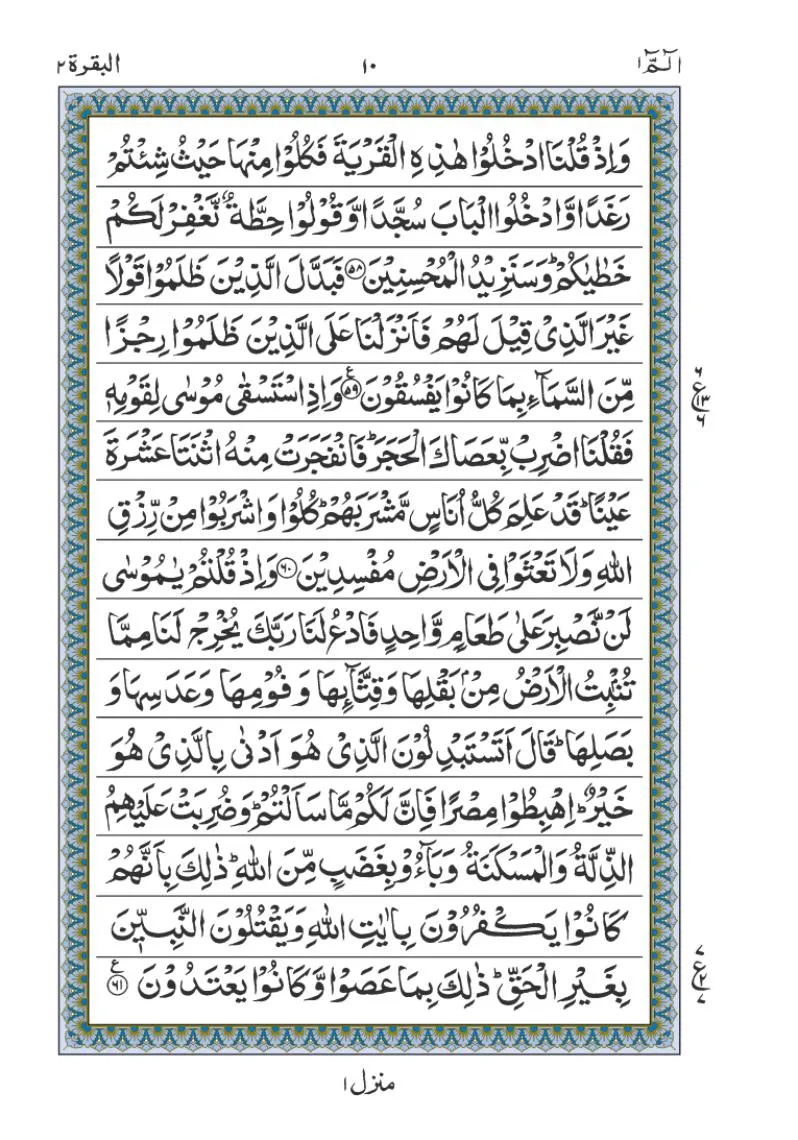 الٓمّٓ ١ ١٠ البقرة ٢
وَاِذْ قُلْنَا ادْخُلُوْا هٰذِهِ الْقَرْيَةَ فَكُلُوْا مِنْهَا حَيْثُ شِئْتُمْ
رَغَدًا وَّادْخُلُوا الْبَابَ سُجَّدًا وَّقُوْلُوْا حِطَّةٌ نَّغْفِرْ لَكُمْ
خَطٰيٰكُمْ ؕ وَسَنَزِيْدُ الْمُحْسِنِيْنَ ٥٨ فَبَدَّلَ الَّذِيْنَ ظَلَمُوْا قَوْلًا
غَيْرَ الَّذِيْ قِيْلَ لَهُمْ فَاَنْزَلْنَا عَلَى الَّذِيْنَ ظَلَمُوْا رِجْزًا
مِّنَ السَّمَآءِ بِمَا كَانُوْا يَفْسُقُوْنَ ٥٩ ع وَاِذِ اسْتَسْقٰى مُوْسٰى لِقَوْمِهٖ
٦ ع ١٣ ٦
فَقُلْنَا اضْرِبْ بِّعَصَاكَ الْحَجَرَ ؕ فَانْفَجَرَتْ مِنْهُ اثْنَتَا عَشْرَةَ
عَيْنًا ؕ قَدْ عَلِمَ كُلُّ اُنَاسٍ مَّشْرَبَهُمْ ؕ كُلُوْا وَاشْرَبُوْا مِنْ رِّزْقِ
اللّٰهِ وَلَا تَعْثَوْا فِى الْاَرْضِ مُفْسِدِيْنَ ٦٠ وَاِذْ قُلْتُمْ يٰمُوْسٰى
لَنْ نَّصْبِرَ عَلٰى طَعَامٍ وَّاحِدٍ فَادْعُ لَنَا رَبَّكَ يُخْرِجْ لَنَا مِمَّا
تُنْۢبِتُ الْاَرْضُ مِنْۢ بَقْلِهَا وَقِثَّآئِهَا وَفُوْمِهَا وَعَدَسِهَا وَ
بَصَلِهَا ؕ قَالَ اَتَسْتَبْدِلُوْنَ الَّذِيْ هُوَ اَدْنٰى بِالَّذِيْ هُوَ
خَيْرٌ ؕ اِهْبِطُوْا مِصْرًا فَاِنَّ لَكُمْ مَّا سَاَلْتُمْ ؕ وَضُرِبَتْ عَلَيْهِمُ
الذِّلَّةُ وَالْمَسْكَنَةُ وَبَآءُوْ بِغَضَبٍ مِّنَ اللّٰهِ ؕ ذٰلِكَ بِاَنَّهُمْ
كَانُوْا يَكْفُرُوْنَ بِاٰيٰتِ اللّٰهِ وَيَقْتُلُوْنَ النَّبِيّٖنَ
بِغَيْرِ الْحَقِّ ؕ ذٰلِكَ بِمَا عَصَوْا وَّكَانُوْا يَعْتَدُوْنَ ٦١ ع
٧ ع ٢ ٧
منزل ١